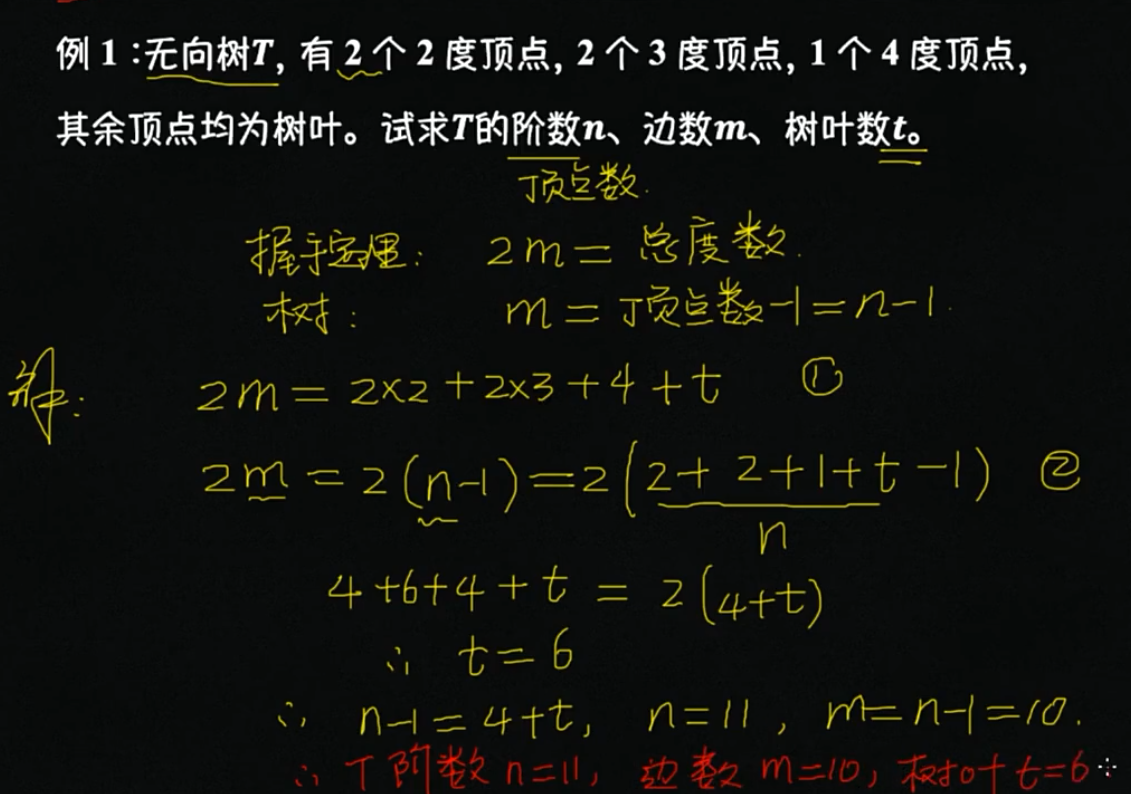 例 1 :无向树T, 有 2 个 2 度顶点, 2 个 3 度顶点, 1 个 4 度顶点,
其余顶点均为树叶。试求T的阶数n、边数m、树叶数t。
顶点数.
握手定理: 2m = 总度数.
树: m = 顶点数-1 = n-1.
解: 2m = 2×2 + 2×3 + 4 + t ①
2m = 2(n-1) = 2(2+2+1+t-1) ②
n
4+6+4+t = 2(4+t)
∴ t = 6
∴ n-1 = 4+t, n=11, m=n-1=10.
∴ T 阶数 n=11, 边数 m=10, 树叶 t=6